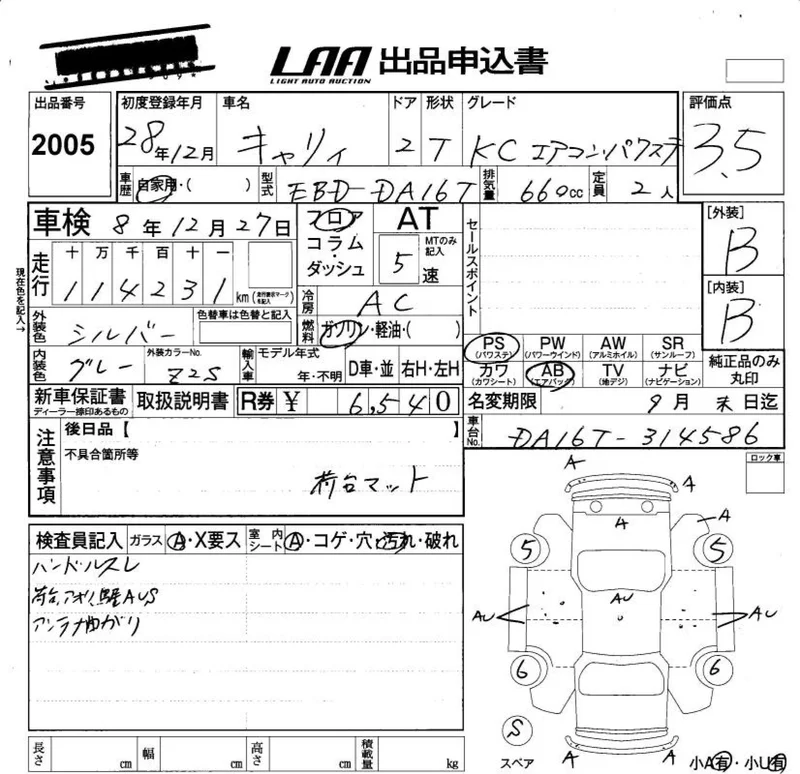 LAA 出品申込書
LIGHT AUTO AUCTION
出品番号 初度登録年月 車名 ドア 形状 グレード 評価点
2005 28年12月 キャリィ 2 T KC エアコン・パワステ 3.5
車歴 自家用・( ) 型式 EBD-DA16T 排気量 660cc 定員 2人
車検 8年12月27日 フロア・コラム・ダッシュ AT 5速 MTのみ記入 セールスポイント [外装] B
現在色を記入→
走行 十 万 千 百 十 一
114231 km (走行請求マークを記入) [内装] B
冷房 AC
外装色 シルバー 色替車は色替と記入 燃料 ガソリン・軽油・( )
PS (パワステ) PW (パワーウインド) AW (アルミホイル) SR (サンルーフ)
内装色 グレー 外装カラーNo. Z2S 輸入車 モデル年式 年・不明 D車・並 右H・左H
カワ (カワシート) AB (エアバッグ) TV (地デジ) ナビ (ナビゲーション) 純正品のみ丸印
新車保証書 ディーラー捺印あるもの 取扱説明書 R券 ¥ 6,540 名変期限 9月末日迄
注意事項 後日品【 】 車台No. DA16T-314586
不具合箇所等 ロック車
荷台マット
検査員記入 ガラス A・X要ス 室内シート A・コゲ・穴・汚れ・破れ
ハンドルスレ
アンテナ曲がり
A A
A A
5 5
AU AU AU
6 6
S
スペア
A A
小A有・小U有
長さ cm 幅 cm 高さ cm 積載量 kg